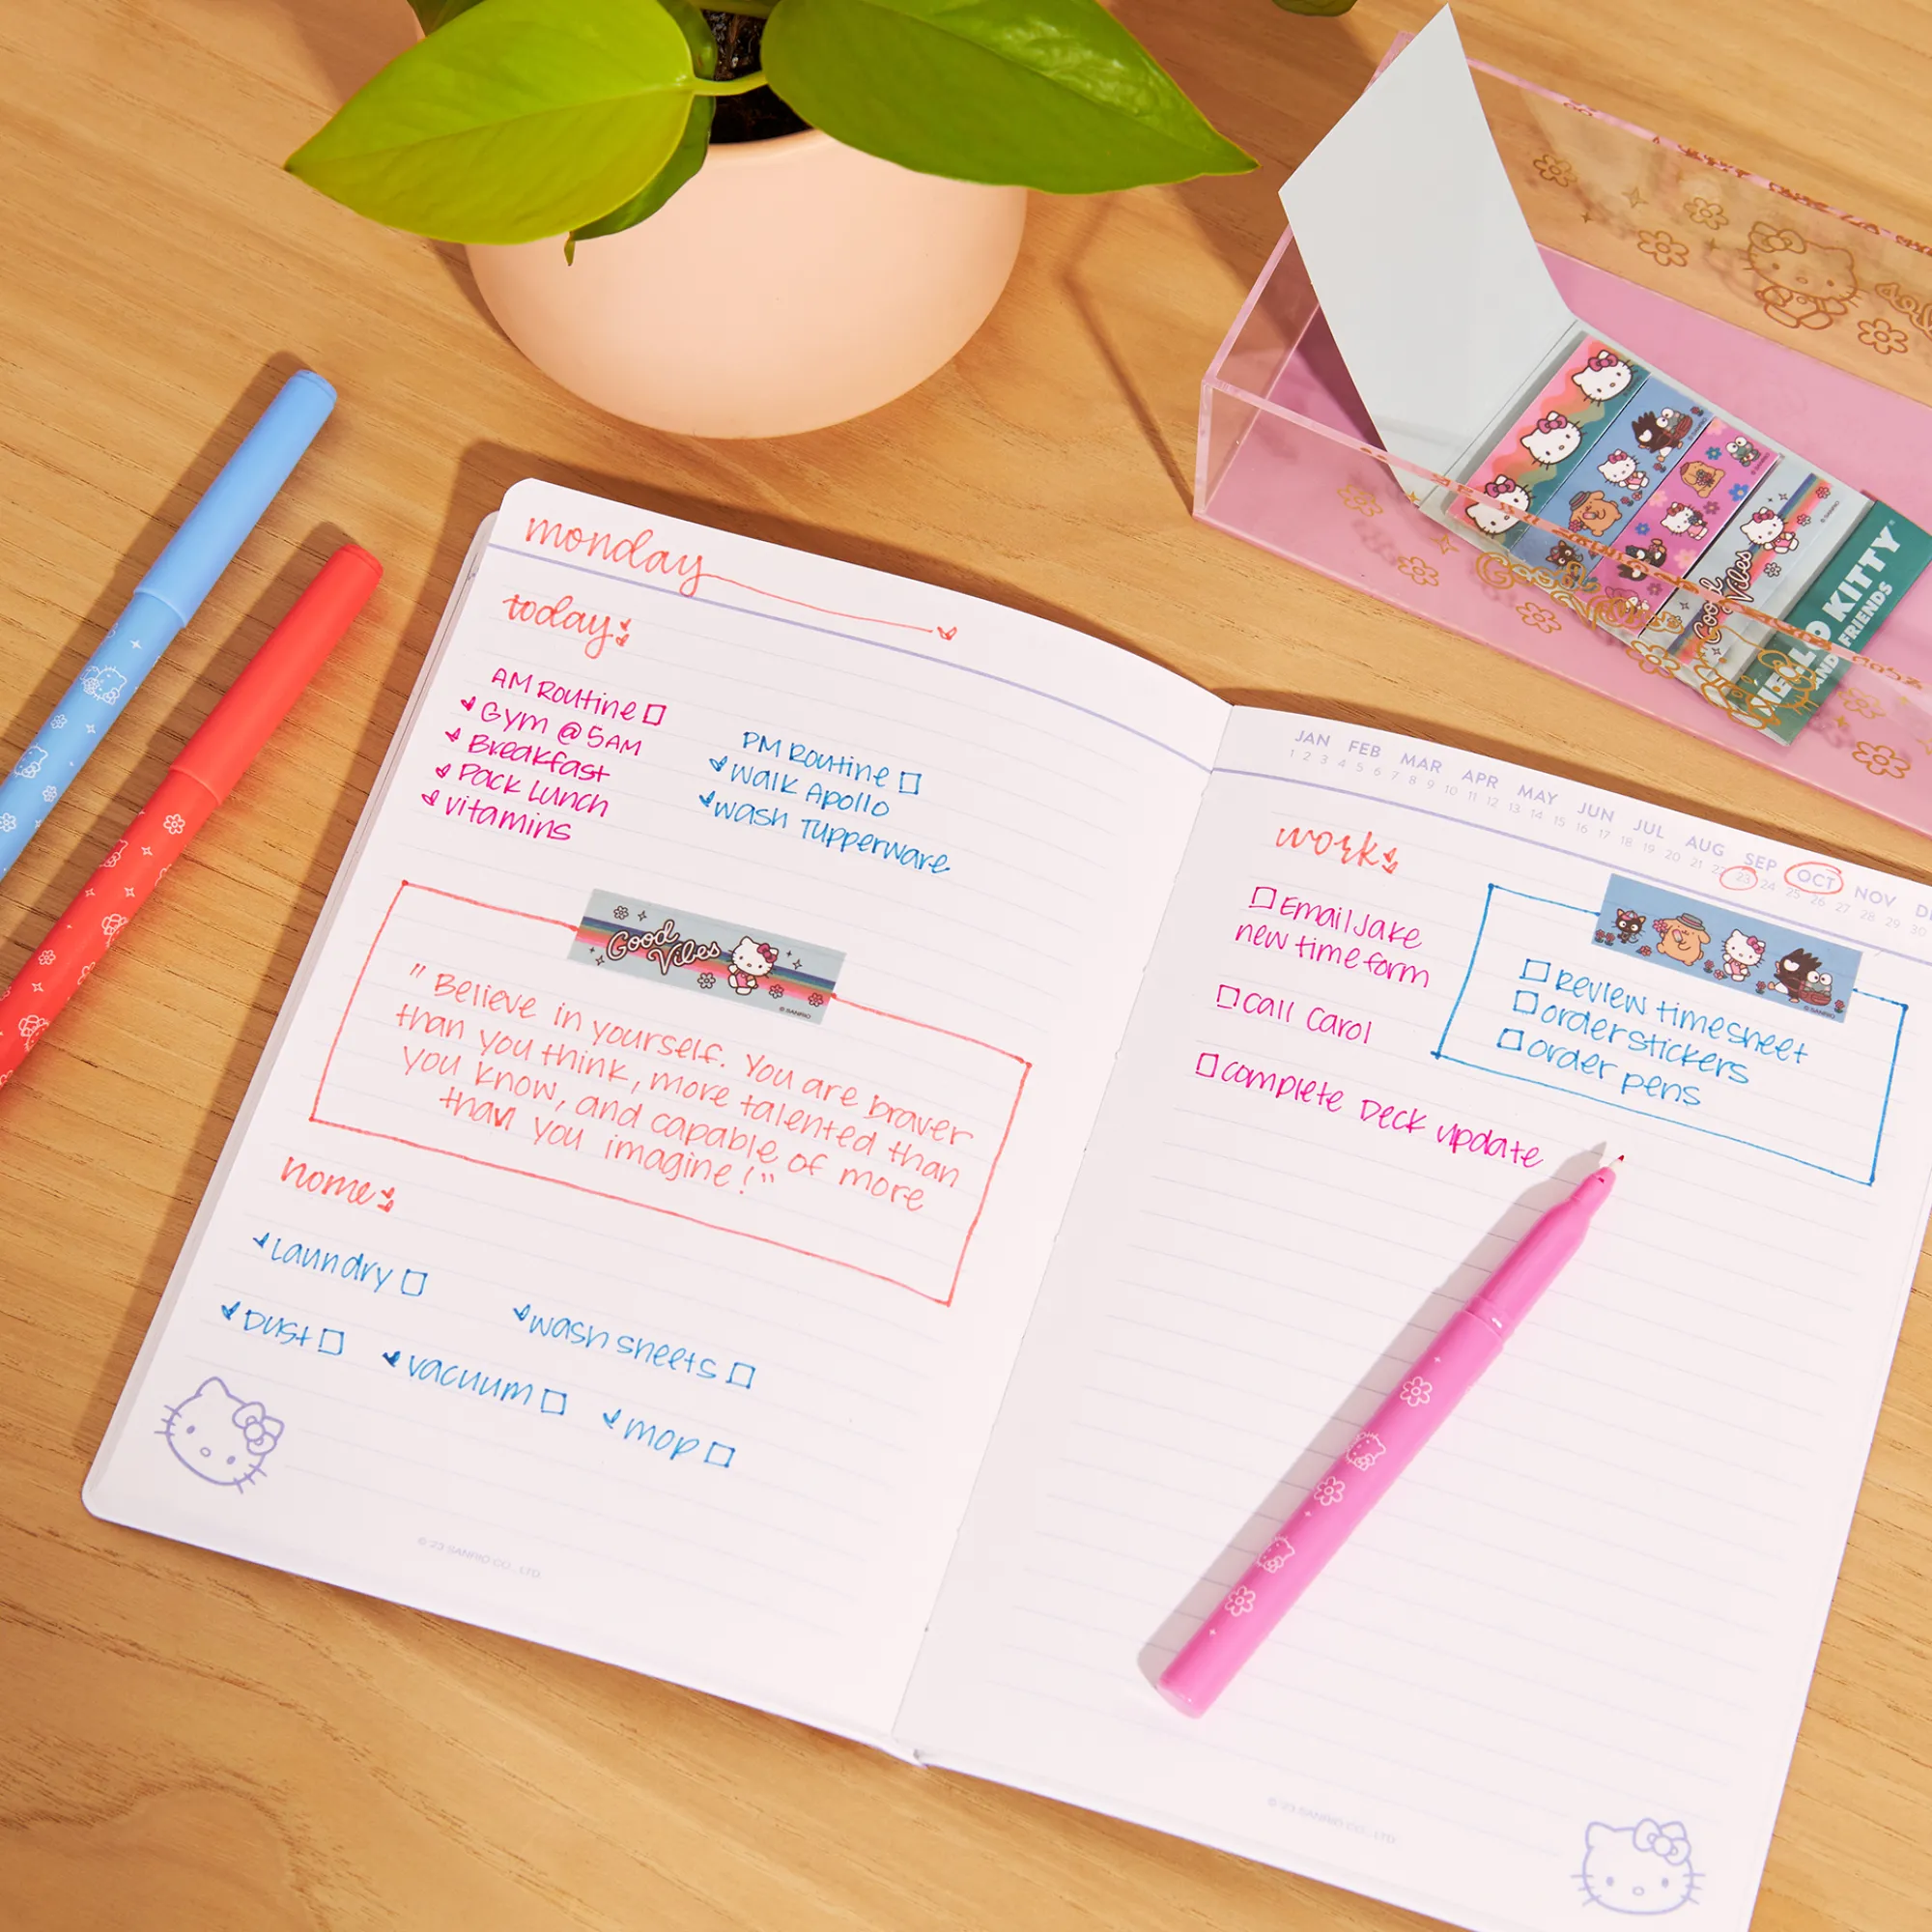 monday
today:
AM Routine
Gym @ 5AM
Breakfast
Pack Lunch
vitamins
PM Routine
Walk Apollo
wash Tupperware
Good
Vibes
© SANRIO
" Believe in yourself. You are braver
than you think, more talented than
you know, and capable of more
than you imagine! "
home:
Laundry
Dust
wash sheets
vacuum
mop
© '23 SANRIO CO., LTD.
JAN FEB MAR APR MAY JUN JUL AUG SEP OCT NOV
1 2 3 4 5 6 7 8 9 10 11 12 13 14 15 16 17 18 19 20 21 22 23 24 25 26 27 28 29 30
work:
Email Jake
new time form
Call Carol
complete Deck update
Review timesheet
order stickers
order pens
© SANRIO
© '23 SANRIO CO., LTD.
Good
Vibes
HELLO KITTY
AND FRIENDS
Good